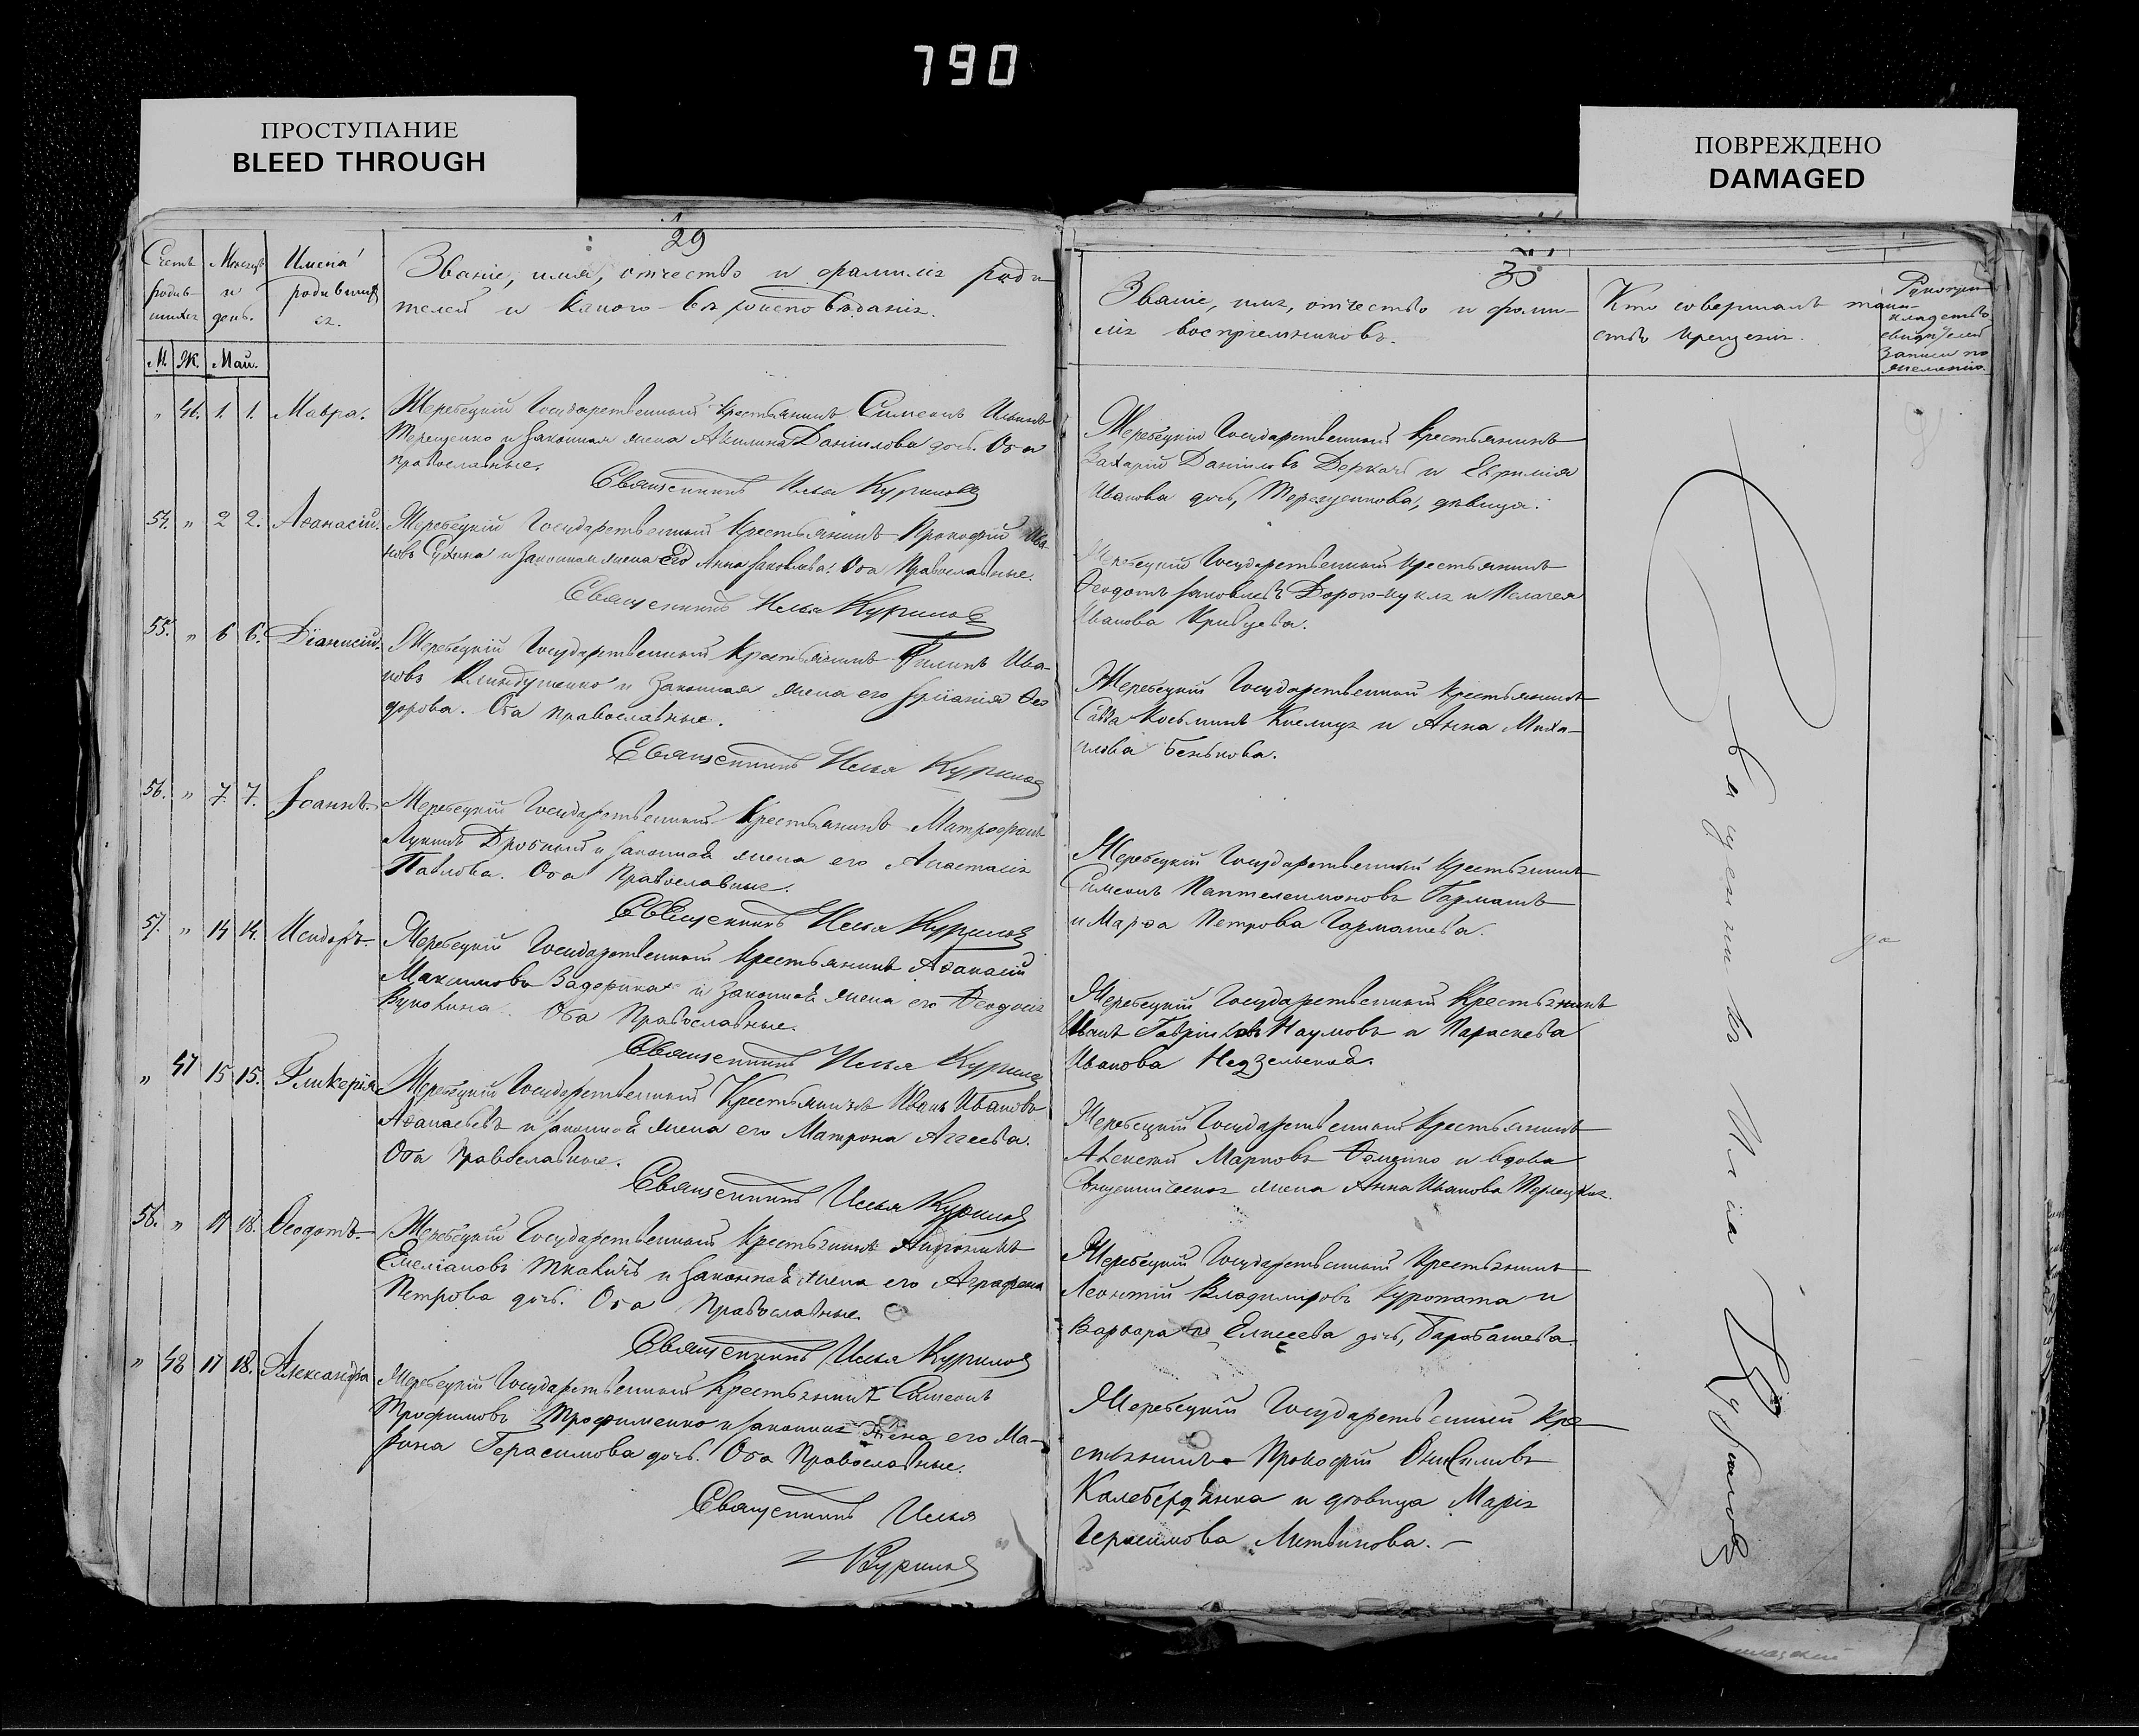 790
ПРОСТУПАНИЕ
BLEED THROUGH
ПОВРЕЖДЕНО
DAMAGED
29
Счетъ родив-шихся
Мѣсяцъ и день.
Имена родивших ся.
Званіе, имя, отчество и фамилія роди-
телей и какого вѣроисповѣданія.
М. Ж. Май.
" 46. 1. 1. Мавра.
Жеребецкій Государственный Крестьянинъ Симеонъ
Терещенко и законная жена Акилина Даніилова дочь. Оба
православные.
Священникъ Илья Курилов
54. " 2 2. Аѳанасій.
Жеребецкій Государственный Крестьянинъ Прокофій Ива
новъ и законная жена его Анна Іаковлева. Оба Православные.
Священникъ Илья Курилов
55. " 6 6. Діонисій.
Жеребецкій Государственный Крестьянинъ Филипъ Ива-
новъ и Законная жена его Ѳео
дорова. Оба православные.
Священникъ Илья Курилов
56. " 7. 7. Іоаннъ.
Жеребецкій Государственный Крестьянинъ Митрофанъ
Лукинъ Дробный и законная жена его Анастасія
Павлова. Оба Православные.
Священникъ Илья Курилов
57. " 14 14. Исидоръ.
Жеребецкій Государственный Крестьянинъ Аѳанасій
Максимовъ и законная жена его Ѳеодосія
Оба Православные.
Священникъ Илья Курилов
" 47 15 15. Гликерія
Жеребецкій Государственный Крестьянинъ Иванъ Ивановъ
Аѳанасьевъ и законная жена его Матрона Аггеева.
Оба Православные.
Священникъ Илья Курилов
56. " 17 18. Ѳеодотъ.
Жеребецкій Государственный Крестьянинъ
Емеліановъ Ткачичъ и законная жена его Аграфена
Петрова дочь. Оба Православные.
Священникъ Илья Курилов
" 48 17 18. Александра
Жеребецкій Государственный Крестьянинъ Симеонъ
Трофимовъ Трофименко и законная жена его Ма-
рина Герасимова дочь. Оба Православные.
Священникъ Илья
Курилов
30
Званіе, имя, отчество и фами-
лія воспріемниковъ.
Кто совершалъ таин-
ство крещенія.
Рукопри-
кладство
свидѣтелей
записи по
желанію.
Жеребецкій Государственный Крестьянинъ
Захарій Даніиловъ Деркачъ и Евфимія
Иванова дочь, Терещенкова, дѣвица.
Жеребецкій Государственный Крестьянинъ
Ѳеодотъ Іаковлевъ и Пелагея
Иванова Кривцева.
Жеребецкій Государственный Крестьянинъ
Савва Косьминъ и Анна Миха-
илова Бенькова.
Жеребецкій Государственный Крестьянинъ
Симеонъ Пантелеимоновъ Гармашъ
и Марѳа Петрова Гармашева.
Жеребецкій Государственный Крестьянинъ
Иванъ Гавриловъ Наумовъ и Параскева
Иванова
Жеребецкій Государственный Крестьянинъ
Алексѣй Марковъ и вдова
жена Анна Иванова
Жеребецкій Государственный Крестьянинъ
Леонтій Владиміровъ Куропата и
Варвара Елисеева дочь, Барабашева.
Жеребецкій Государственный Кре-
стьянинъ Прокофій
и дѣвица Марія
Герасимова Литвинова.
Священникъ Илія Курилов